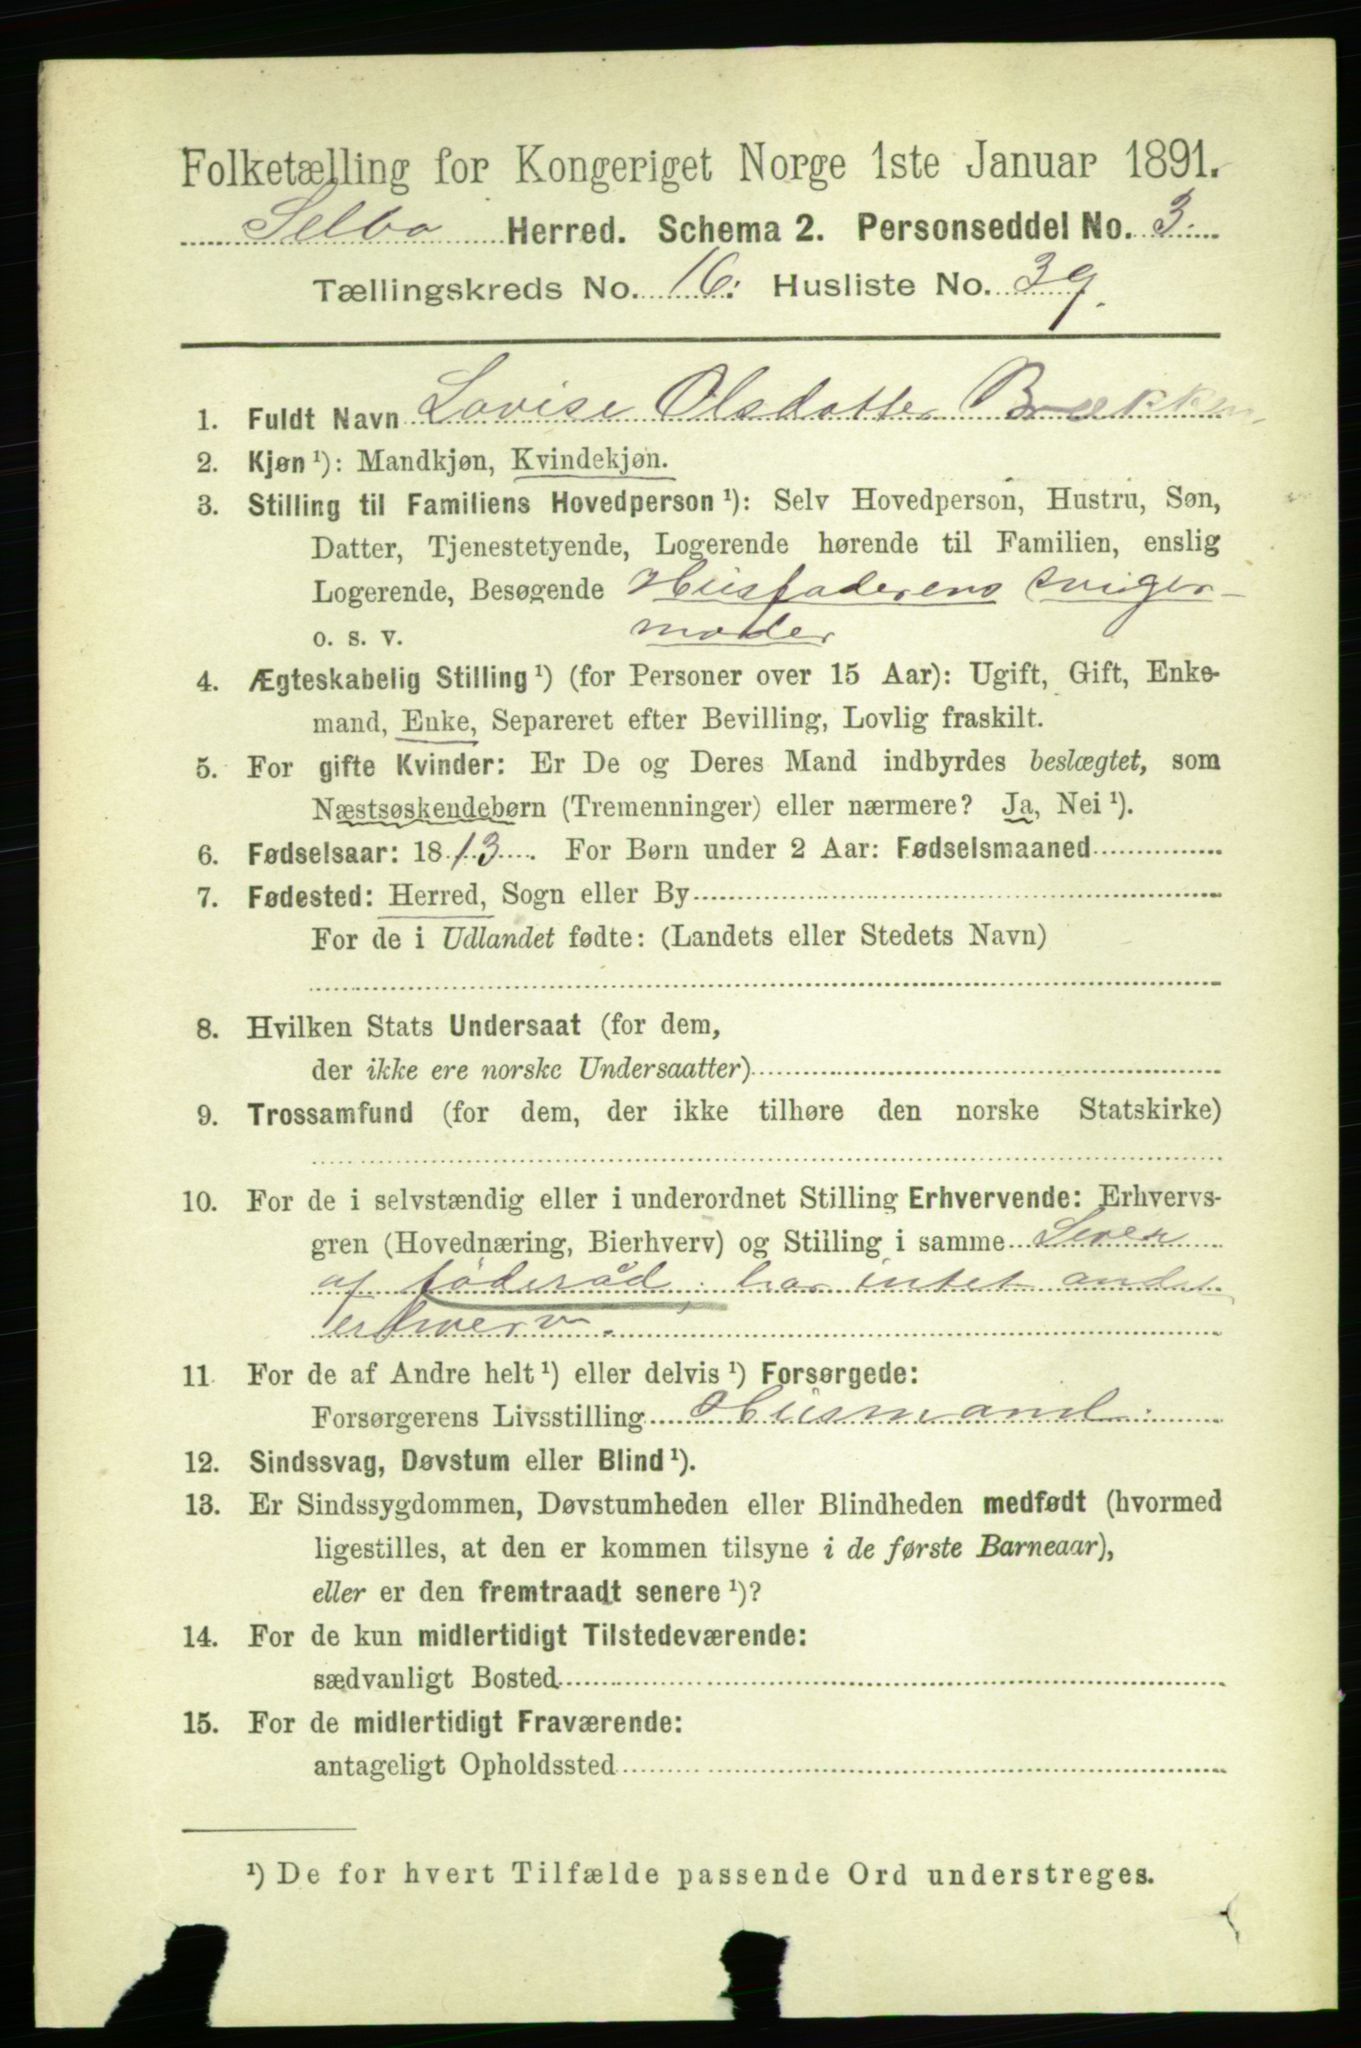 Folketælling for Kongeriget Norge 1ste Januar 1891.
Selbo Herred. Schema 2. Personseddel No. 3.
Tællingskreds No. 16. Husliste No. 39.
1. Fuldt Navn Lovise Olsdatter Brækken
2. Kjøn ¹): Mandkjøn, Kvindekjøn.
3. Stilling til Familiens Hovedperson ¹): Selv Hovedperson, Hustru, Søn,
Datter, Tjenestetyende, Logerende hørende til Familien, enslig
Logerende, Besøgende Husfaderens sviger-
o. s. v. moder
4. Ægteskabelig Stilling ¹) (for Personer over 15 Aar): Ugift, Gift, Enke-
mand, Enke, Separeret efter Bevilling, Lovlig fraskilt.
5. For gifte Kvinder: Er De og Deres Mand indbyrdes beslægtet, som
Næstsøskendebørn (Tremenninger) eller nærmere? Ja, Nei ¹).
6. Fødselsaar: 1813. For Børn under 2 Aar: Fødselsmaaned
7. Fødested: Herred, Sogn eller By
For de i Udlandet fødte: (Landets eller Stedets Navn)
8. Hvilken Stats Undersaat (for dem,
der ikke ere norske Undersaatter)
9. Trossamfund (for dem, der ikke tilhøre den norske Statskirke)
10. For de i selvstændig eller i underordnet Stilling Erhvervende: Erhvervs-
gren (Hovednæring, Bierhverv) og Stilling i samme Lever
af föderåd; har intet andet
erhverv.
11. For de af Andre helt ¹) eller delvis ¹) Forsørgede:
Forsørgerens Livsstilling Husmand
12. Sindssvag, Døvstum eller Blind ¹).
13. Er Sindssygdommen, Døvstumheden eller Blindheden medfødt (hvormed
ligestilles, at den er kommen tilsyne i de første Barneaar),
eller er den fremtraadt senere ¹)?
14. For de kun midlertidigt Tilstedeværende:
sædvanligt Bosted
15. For de midlertidigt Fraværende:
antageligt Opholdssted
¹) De for hvert Tilfælde passende Ord understreges.